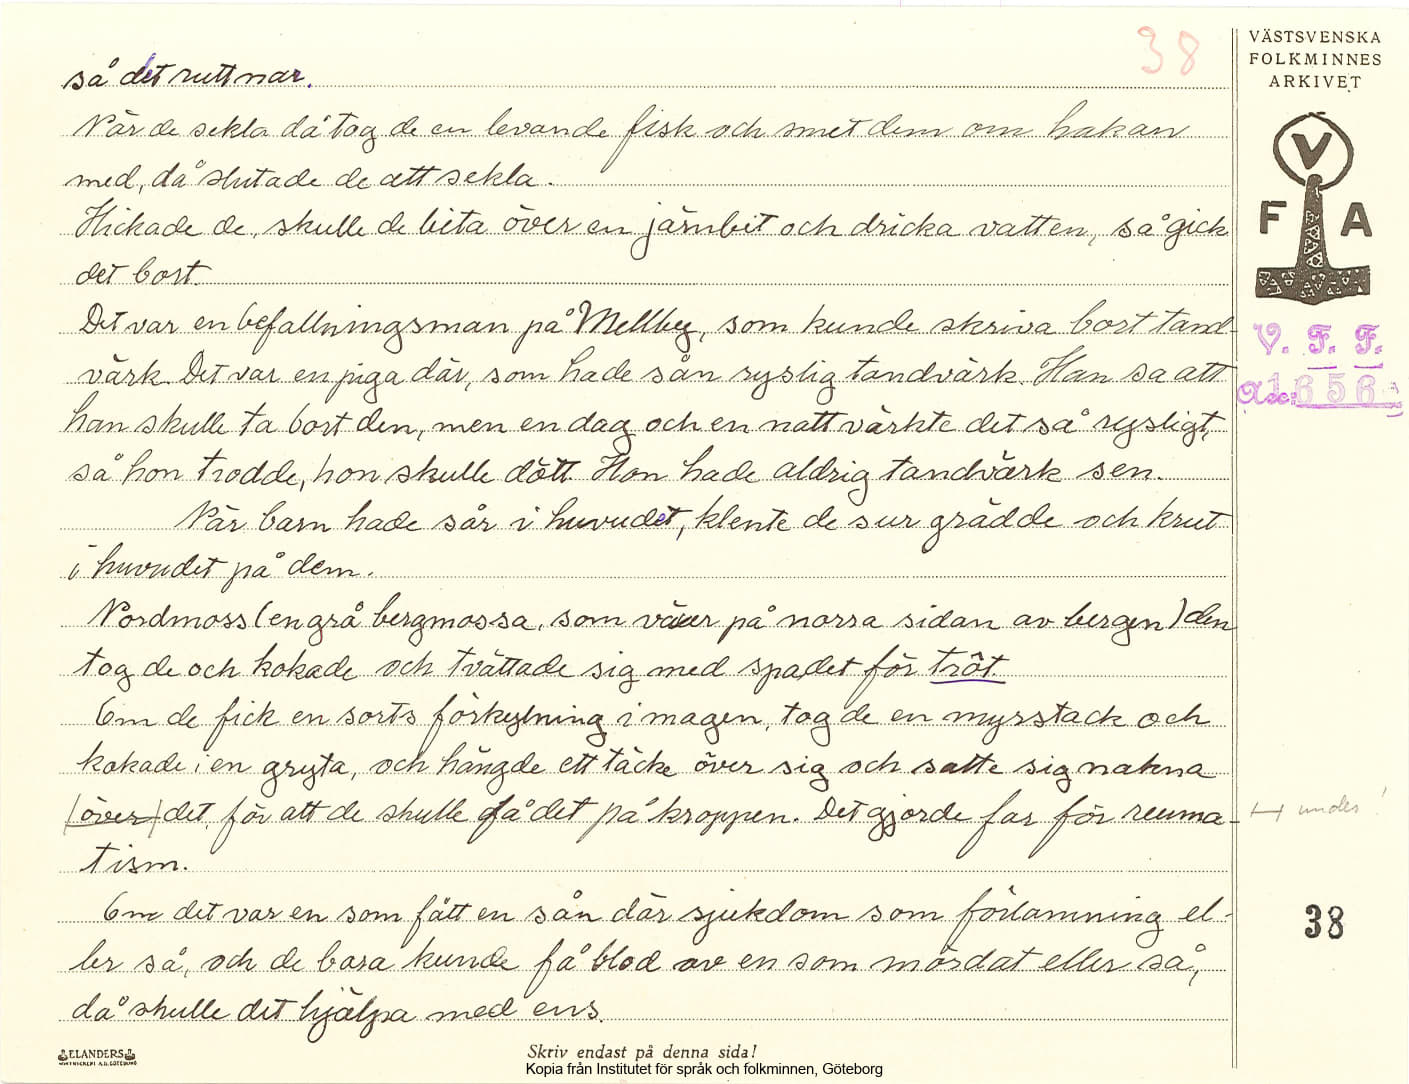 38
VÄSTSVENSKA
FOLKMINNES
ARKIVET
så det ruttnar.
När de sekla då tog de en levande fisk och smet dem om hakan
med, då slutade de att sekla.
Hickade de, skulle de bita över en järnbit och dricka vatten, så gick
det bort.
Det var en befallningsman på Mellby, som kunde skriva bort tand-
värk. Det var en piga där, som hade sån ryslig tandvärk. Han sa att
han skulle ta bort den, men en dag och en natt värkte det så rysligt,
så hon trodde, hon skulle dött. Hon hade aldrig tandvärk sen.
När barn hade sår i huvudet, klente de sur grädde och krut
i huvudet på dem.
Nordmoss (en grå bergmossa, som växer på norra sidan av bergen) den
tog de och kokade och tvättade sig med spadet för tröt.
Om de fick en sorts förkylning i magen, tog de en myrstack och
kokade i en gryta, och hängde ett täcke över sig och satte sig nakna
(över) det, för att de skulle få det på kroppen. Det gjorde far för reuma-
tism.
Om det var en som fått en sån där sjukdom som förlamning el-
ler så, och de bara kunde få blod av en som mördat eller så,
då skulle det hjälpa med ens.
V
F A
V. F. F.
Acc. 1656
under!
38
ELANDERS
Skriv endast på denna sida!
Kopia från Institutet för språk och folkminnen, Göteborg